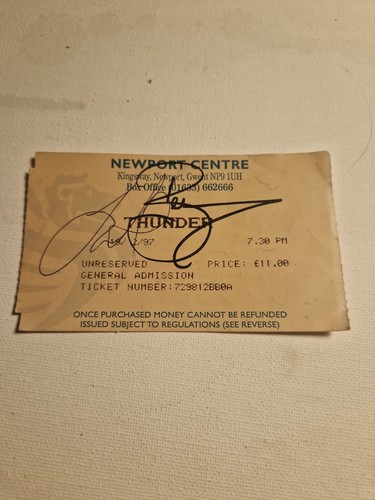 NEWPORT CENTRE
Kingsway, Newport, Gwent NP9 1UH
Box Office (01633) 662666
THUNDER
7.30 PM
UNRESERVED PRICE: £11.00
GENERAL ADMISSION
TICKET NUMBER:729812BB0A
ONCE PURCHASED MONEY CANNOT BE REFUNDED
ISSUED SUBJECT TO REGULATIONS (SEE REVERSE)